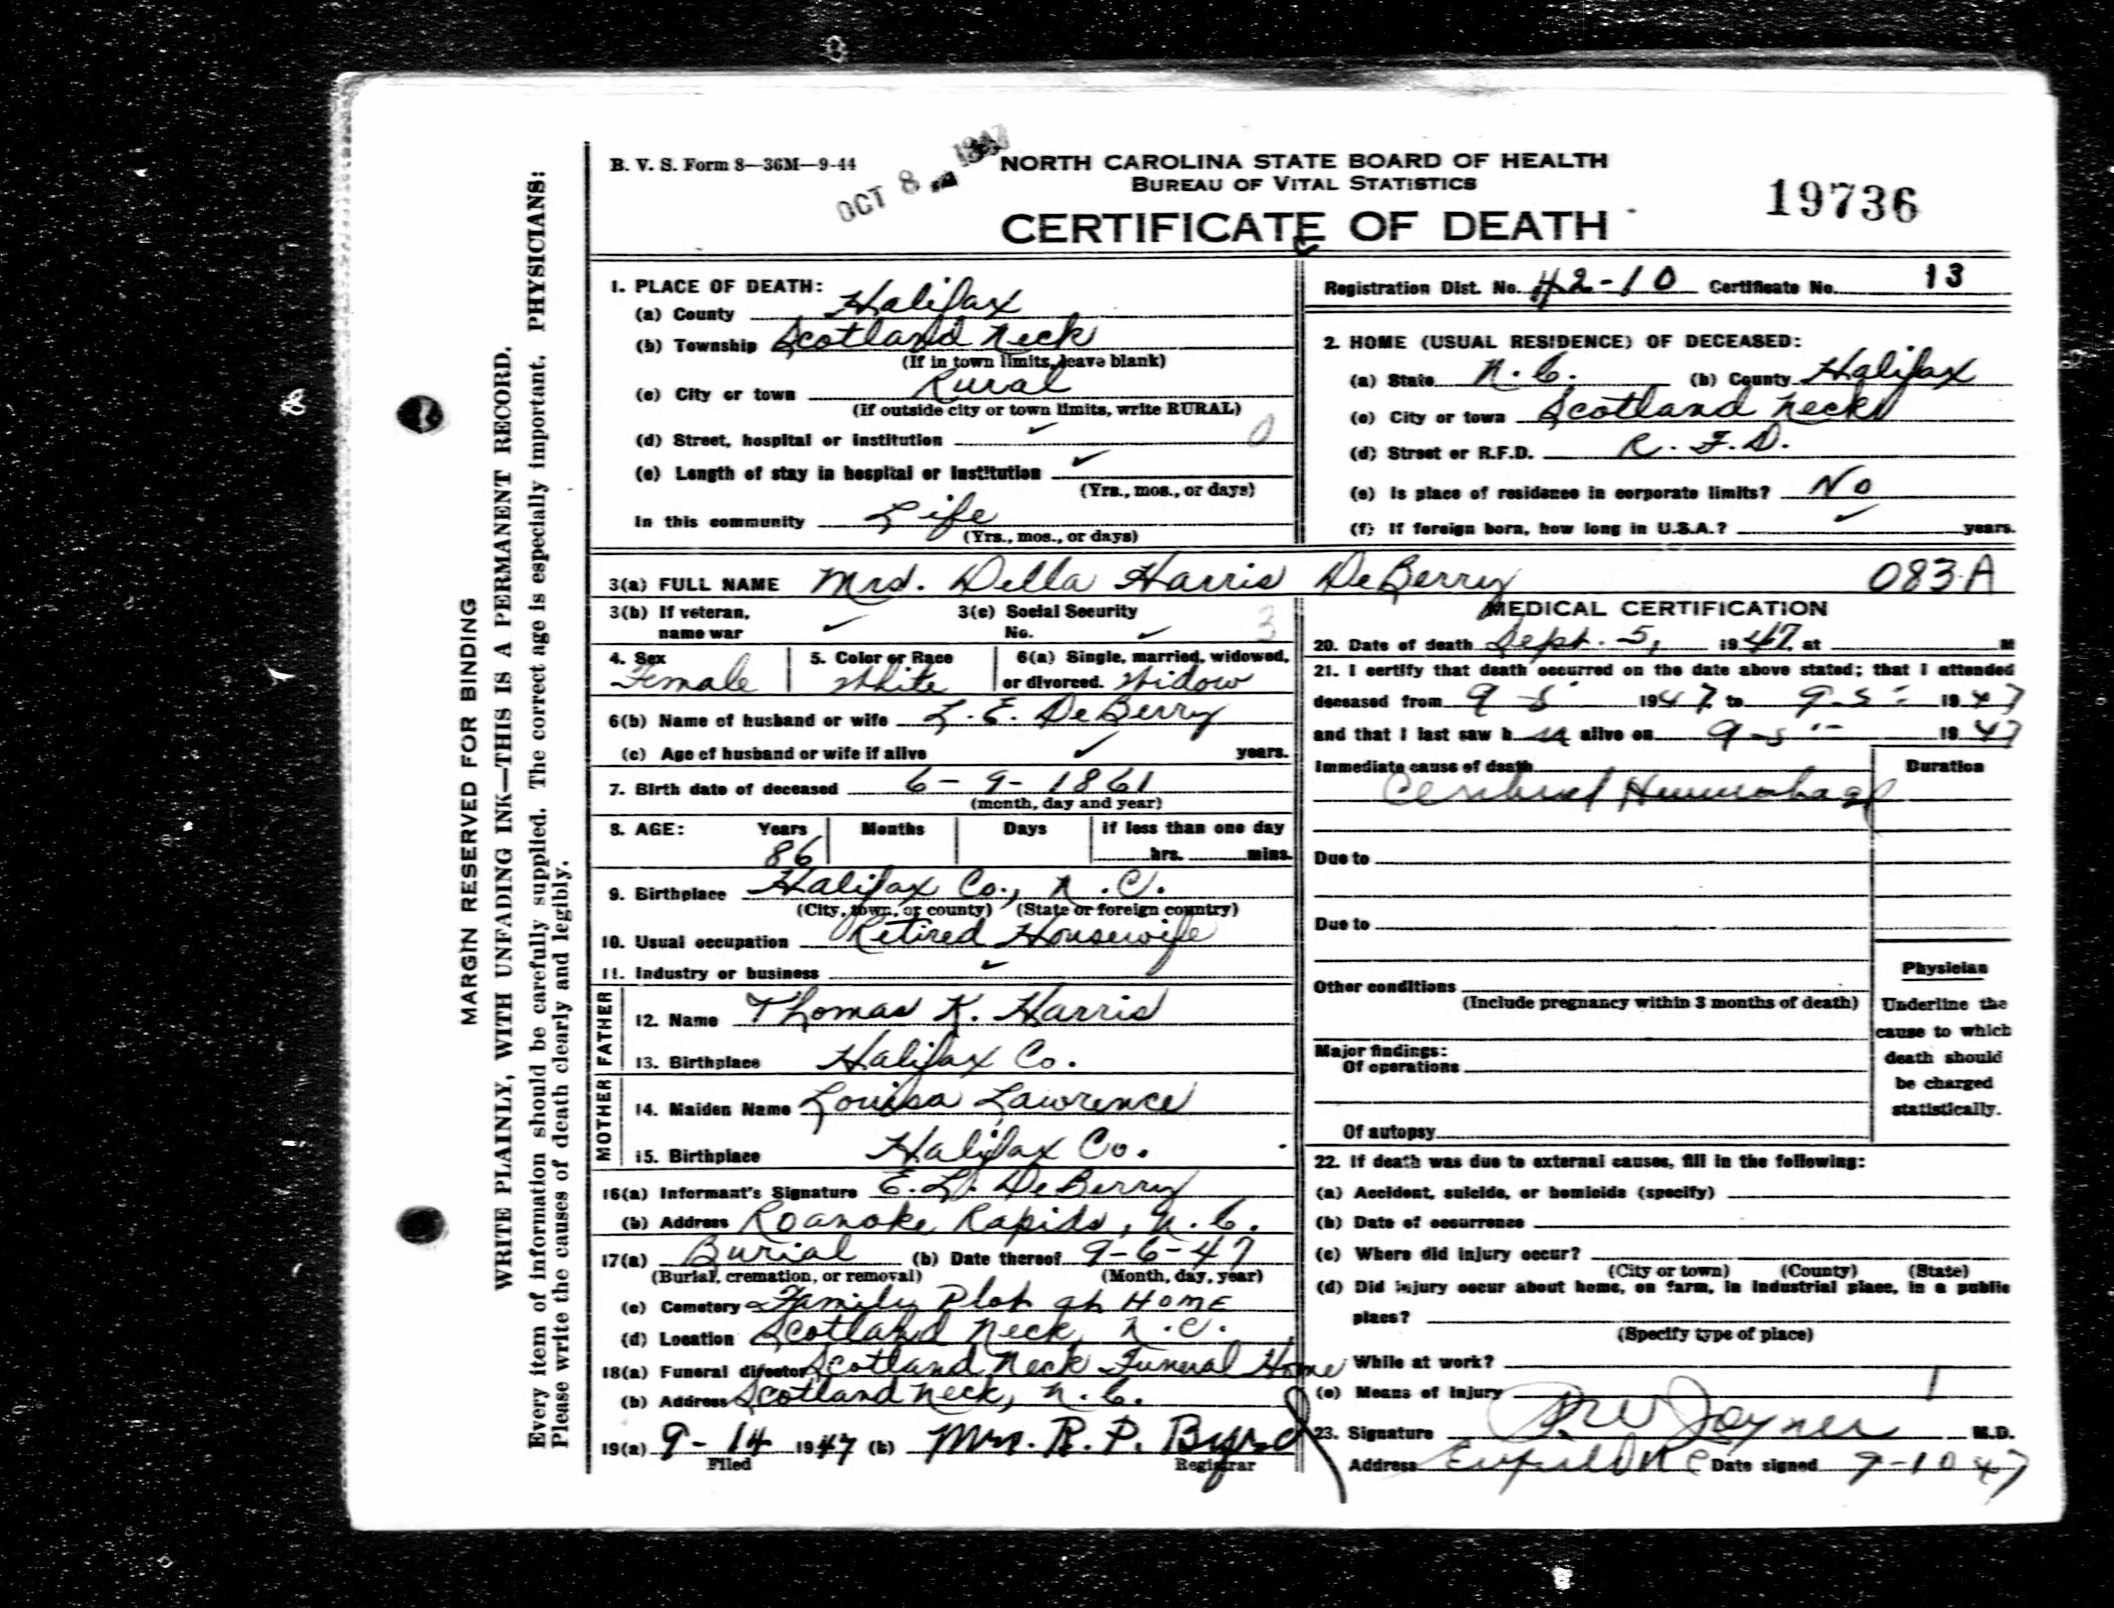 B. V. S. Form 8—36M—9-44
OCT 8 1947
NORTH CAROLINA STATE BOARD OF HEALTH
BUREAU OF VITAL STATISTICS
CERTIFICATE OF DEATH
19736
MARGIN RESERVED FOR BINDING
WRITE PLAINLY, WITH UNFADING INK—THIS IS A PERMANENT RECORD.
Every item of information should be carefully supplied. The correct age is especially important. PHYSICIANS:
Please write the causes of death clearly and legibly.
1. PLACE OF DEATH:
(a) County Halifax
(b) Township Scotland Neck
(If in town limits, leave blank)
(c) City or town Rural
(If outside city or town limits, write RURAL)
(d) Street, hospital or institution ✓ 0
(e) Length of stay in hospital or institution ✓
(Yrs., mos., or days)
In this community Life
(Yrs., mos., or days)
Registration Dist. No. 42-10 Certificate No. 13
2. HOME (USUAL RESIDENCE) OF DECEASED:
(a) State N.C. (b) County Halifax
(c) City or town Scotland Neck
(d) Street or R.F.D. R.F.D.
(e) Is place of residence in corporate limits? No
(f) If foreign born, how long in U.S.A.? ✓ years.
3(a) FULL NAME Mrs. Della Harris DeBerry 083A
3(b) If veteran, name war ✓
3(c) Social Security No. ✓ 3
4. Sex Female
5. Color or Race White
6(a) Single, married, widowed, or divorced. Widow
6(b) Name of husband or wife L. E. DeBerry
(c) Age of husband or wife if alive ✓ years.
7. Birth date of deceased 6-9-1861
(month, day and year)
8. AGE: Years Months Days If less than one day
86 hrs. mins.
9. Birthplace Halifax Co., N.C.
(City, town, or county) (State or foreign country)
10. Usual occupation Retired Housewife
11. Industry or business ✓
FATHER
12. Name Thomas K. Harris
13. Birthplace Halifax Co.
MOTHER
14. Maiden Name Louisa Lawrence
15. Birthplace Halifax Co.
16(a) Informant's Signature E. L. DeBerry
(b) Address Roanoke Rapids, N.C.
17(a) Burial (b) Date thereof 9-6-47
(Burial, cremation, or removal) (Month, day, year)
(c) Cemetery Family Plot at HOME
(d) Location Scotland Neck, N.C.
18(a) Funeral director Scotland Neck Funeral Home
(b) Address Scotland Neck, N.C.
19(a) 9-14 1947 (b) Mrs. R. P. Byrd
Filed Registrar
MEDICAL CERTIFICATION
20. Date of death Sept. 5, 1947 at M
21. I certify that death occurred on the date above stated; that I attended
deceased from 9 5 1947 to 9-5- 1947
and that I last saw h er alive on 9-5- 1947
Immediate cause of death Duration
Cerebral Hemorrhage
Due to
Due to
Other conditions
(Include pregnancy within 3 months of death)
Major findings:
Of operations
Of autopsy
Physician
Underline the
cause to which
death should
be charged
statistically.
22. If death was due to external causes, fill in the following:
(a) Accident, suicide, or homicide (specify)
(b) Date of occurrence
(c) Where did injury occur?
(City or town) (County) (State)
(d) Did injury occur about home, on farm, in industrial place, in a public
place?
(Specify type of place)
While at work?
(e) Means of injury
23. Signature Joyner M.D.
Address Enfield NC Date signed 9-10 47